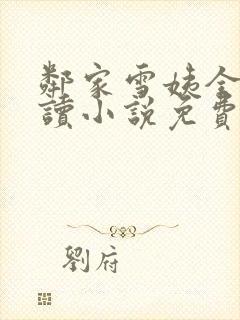 鄰家雪姨全
讀小說免費
劉府